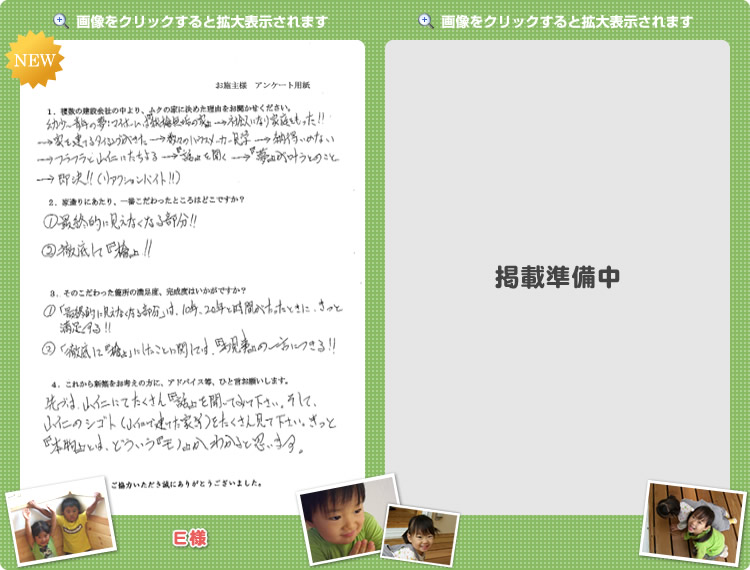 画像をクリックすると拡大表示されます
画像をクリックすると拡大表示されます
NEW
お施主様　アンケート用紙
1．複数の建設会社の中より、ムクの家に決めた理由をお聞かせください。
→家を建てるタイミングがきた→数々のハウスメーカー見学→納得いかない
→フラフラと山仁にたちよる→『話』を聞く→『夢』が叶うとのこと
→即決!!(リアクションバイト!!)
2．家造りにあたり、一番こだわったところはどこですか？
①最終的に見えなくなる部分!!
②徹底して『檜』!!
3．そのこだわった箇所の満足度、完成度はいかがですか？
①「最終的に見えなくなる部分」は、10年、20年と時間がたったときに、きっと
満足する!!
②「徹底して『檜』」にしたことに関しては、の一言につきる!!
4．これから新築をお考えの方に、アドバイス等、ひと言お願いします。
先づは、山仁にてたくさん『話』を聞いてみて下さい。そして、
山仁のシゴト(山仁で建てた家等)をたくさん見て下さい。きっと
『本物』とは、どういう『モノ』か、わかると思います。
ご協力いただき誠にありがとうございました。
掲載準備中
E様